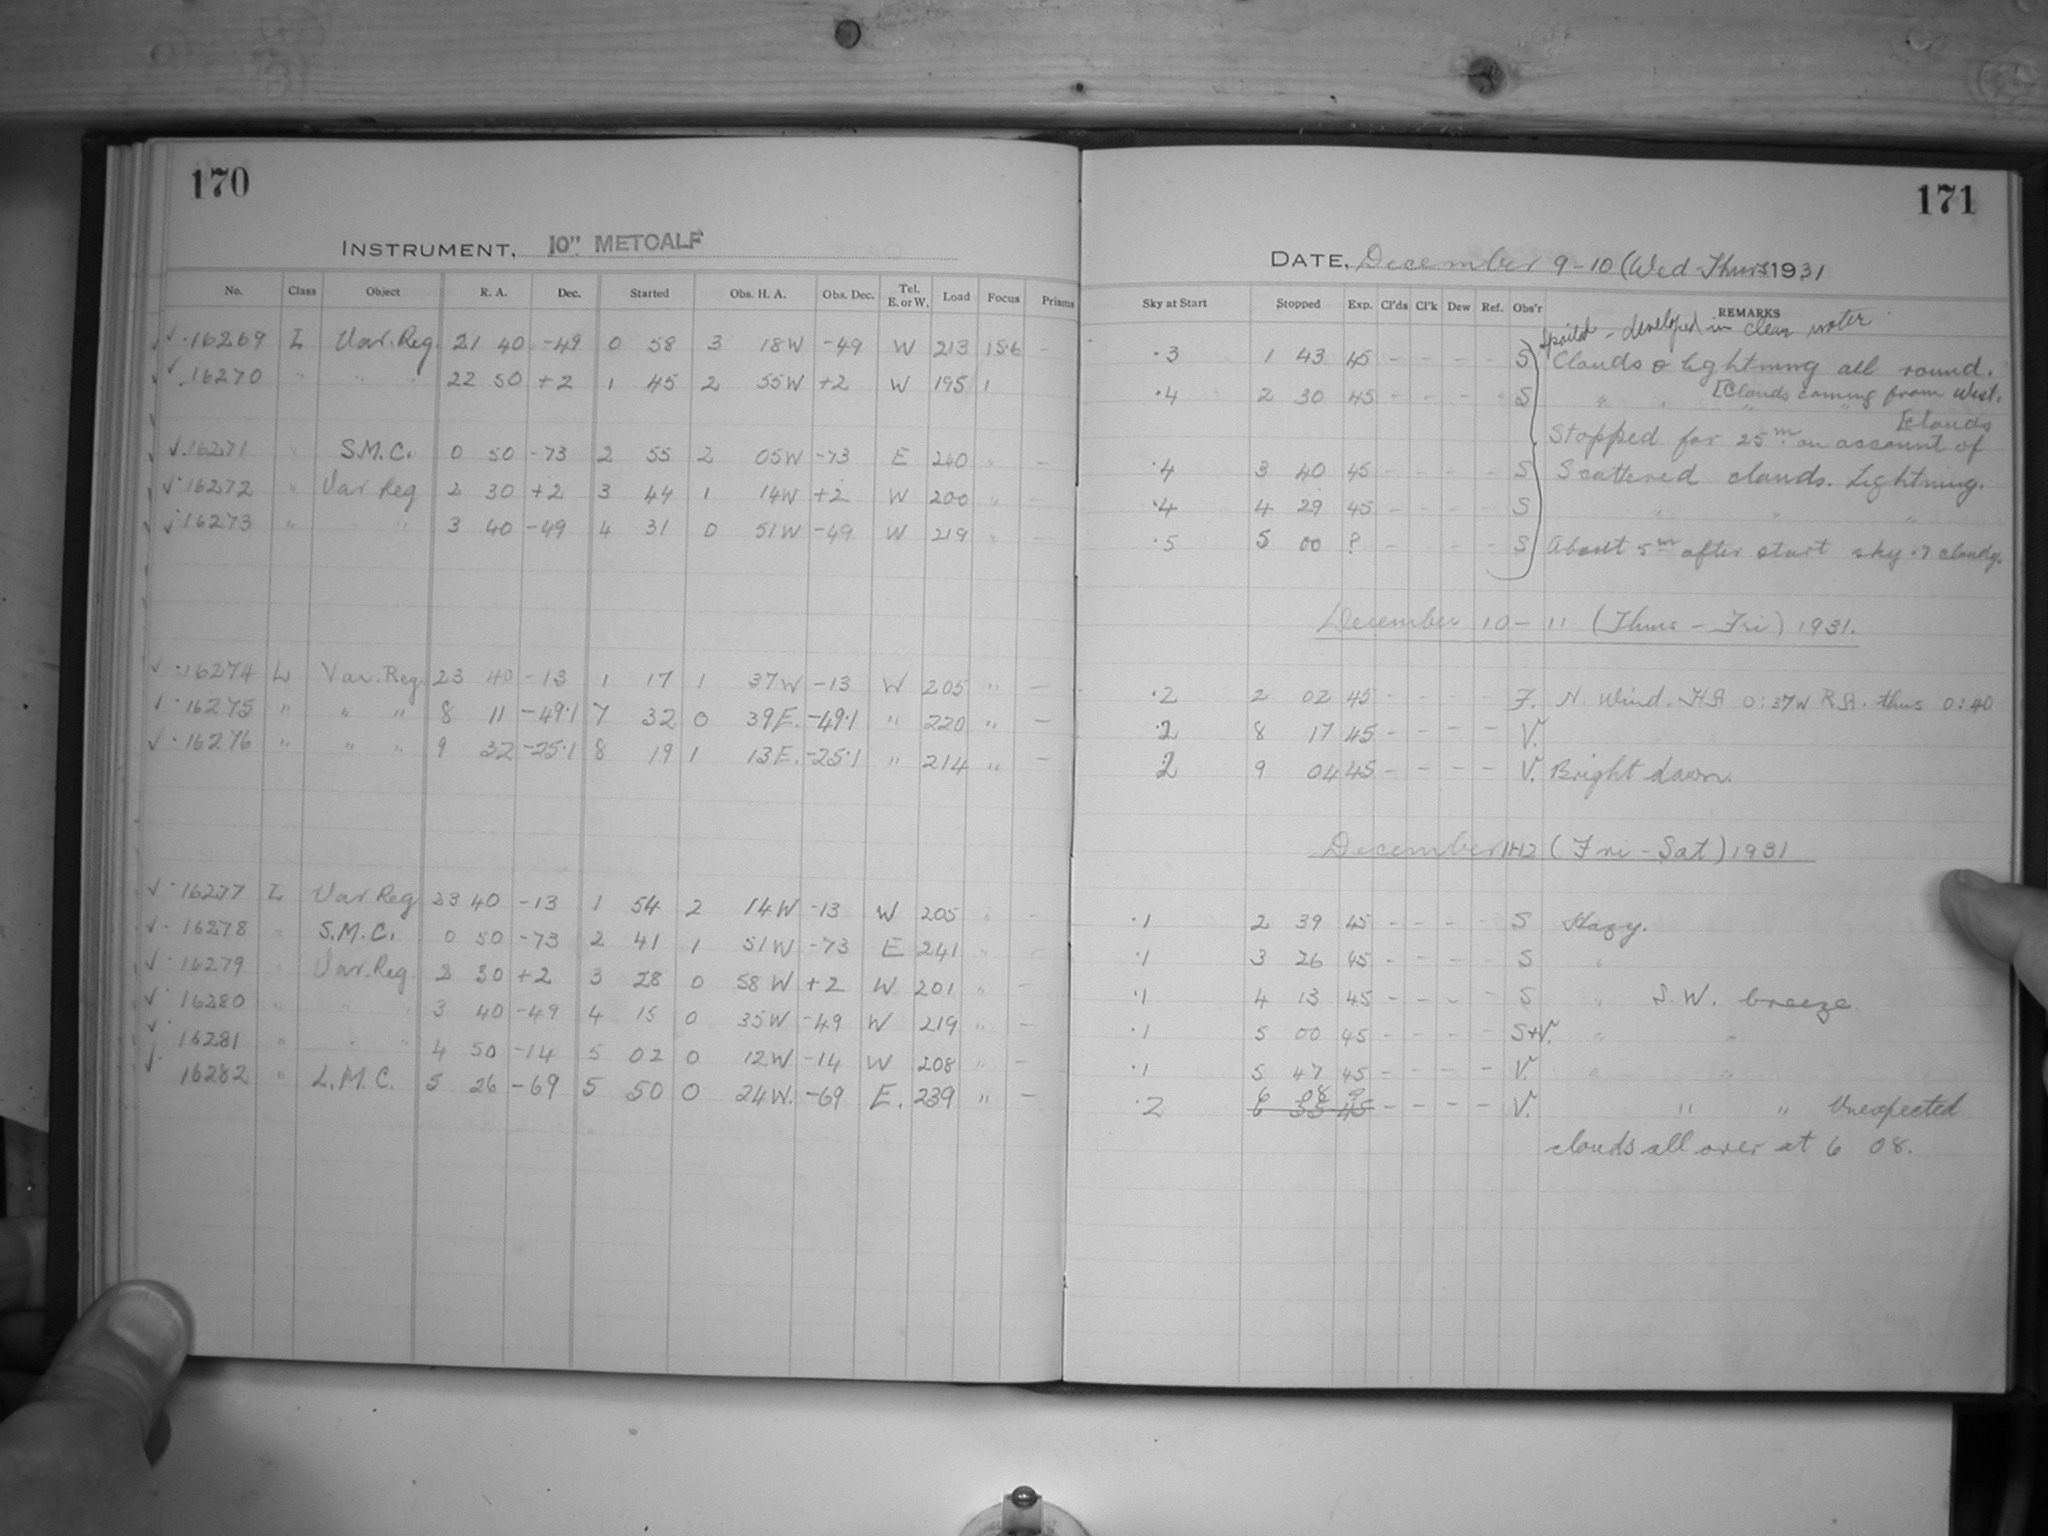 170
INSTRUMENT, 10" METCALF
No. Class Object R. A. Dec. Started Obs. H. A. Obs. Dec. Tel. E. or W. Load Focus Prisms
✓ · 16269 L Var. Reg. 21 40 -49 0 58 3 18W -49 W 213 15.6 -
✓ · 16270 " " " 22 50 +2 1 45 2 55W +2 W 195 1
✓ · 16271 " S.M.C. 0 50 -73 2 55 2 05W -73 E 240 " -
✓ · 16272 " Var Reg 2 30 +2 3 44 1 14W +2 W 200 " -
✓ · 16273 " " " 3 40 -49 4 31 0 51W -49 W 219 " -
✓ · 16274 L Var. Reg. 23 40 -13 1 17 1 37W -13 W 205 " -
✓ · 16275 " " " 8 11 -49.1 7 32 0 39E. -49.1 " 220 " -
✓ · 16276 " " " 9 32 -25.1 8 19 1 13E. -25.1 " 214 " -
✓ · 16277 L Var Reg 23 40 -13 1 54 2 14W -13 W 205 " -
✓ · 16278 " S.M.C. 0 50 -73 2 41 1 51W -73 E 241 " -
✓ · 16279 " Var. Reg. 2 30 +2 3 28 0 58W +2 W 201 " -
✓ · 16280 " " " 3 40 -49 4 15 0 35W -49 W 219 " -
✓ · 16281 " " " 4 50 -14 5 02 0 12W -14 W 208 " -
✓ · 16282 " L.M.C. 5 26 -69 5 50 0 24W. -69 E. 239 " -
171
DATE, December 9-10 (Wed-Thurs) 1931
Sky at Start Stopped Exp. Cl'ds Cl'k Dew Ref. Obs'r REMARKS
Spoiled - developed in clean water
.3 1 43 45 - - - - S Clouds & lightning all round.
.4 2 30 45 - - - - S " " [Clouds coming from West.
[clouds
Stopped for 25m on account of
.4 3 40 45 - - - - S Scattered clouds. Lightning.
.4 4 29 45 - - - - S " " "
.5 5 00 ? - - - - S About 5m after start sky .7 cloudy.
December 10-11 (Thurs-Fri) 1931.
.2 2 02 45 - - - - F. N. Wind. HA 0:37W R.A. thus 0:40
.2 8 17 45 - - - - V.
2 9 04 45 - - - - V. Bright dawn.
December 11-12 (Fri-Sat) 1931
.1 2 39 45 - - - - S Hazy.
.1 3 26 45 - - - - S "
.1 4 13 45 - - - - S " S.W. breeze
.1 5 00 45 - - - - S+V. " "
.1 5 47 45 - - - - V. " "
6 08 ?
.2 6 35 45 - - - - V. " " Unexpected
clouds all over at 6 08.